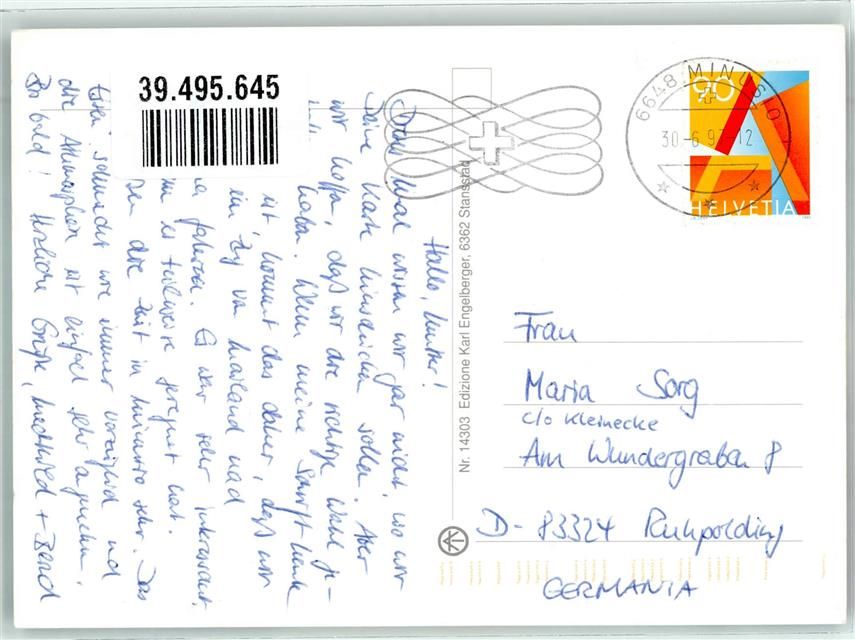 39.495.645
6648 MINUSIO
30-6.97-12
90
A
HELVETIA
Hallo, Mutter!
Diesmal wissen wir gar nicht, wo wir
Deine Karte hinschicken sollen. Aber
wir hoffen, daß wir die richtige Wahl ge-
haben. Wenn meine Schrift heute
ist, kommt das daher, daß wir
im Zug von Mailand nach
fahren. Es war sehr interessant,
es teilweise geregnet hat.
die Zeit in Minusio sehr. Das
Essen schmeckt wie immer vorzüglich und
die Atmosphäre ist einfach sehr angenehm.
Bis bald! Herzliche Grüße, Mechthild + Bernd
Nr. 14303 Edizione Karl Engelberger, 6362 Stansstad
Frau
Maria Sorg
c/o Kleinecke
Am Wundergraben 8
D-83324 Ruhpolding
GERMANIA